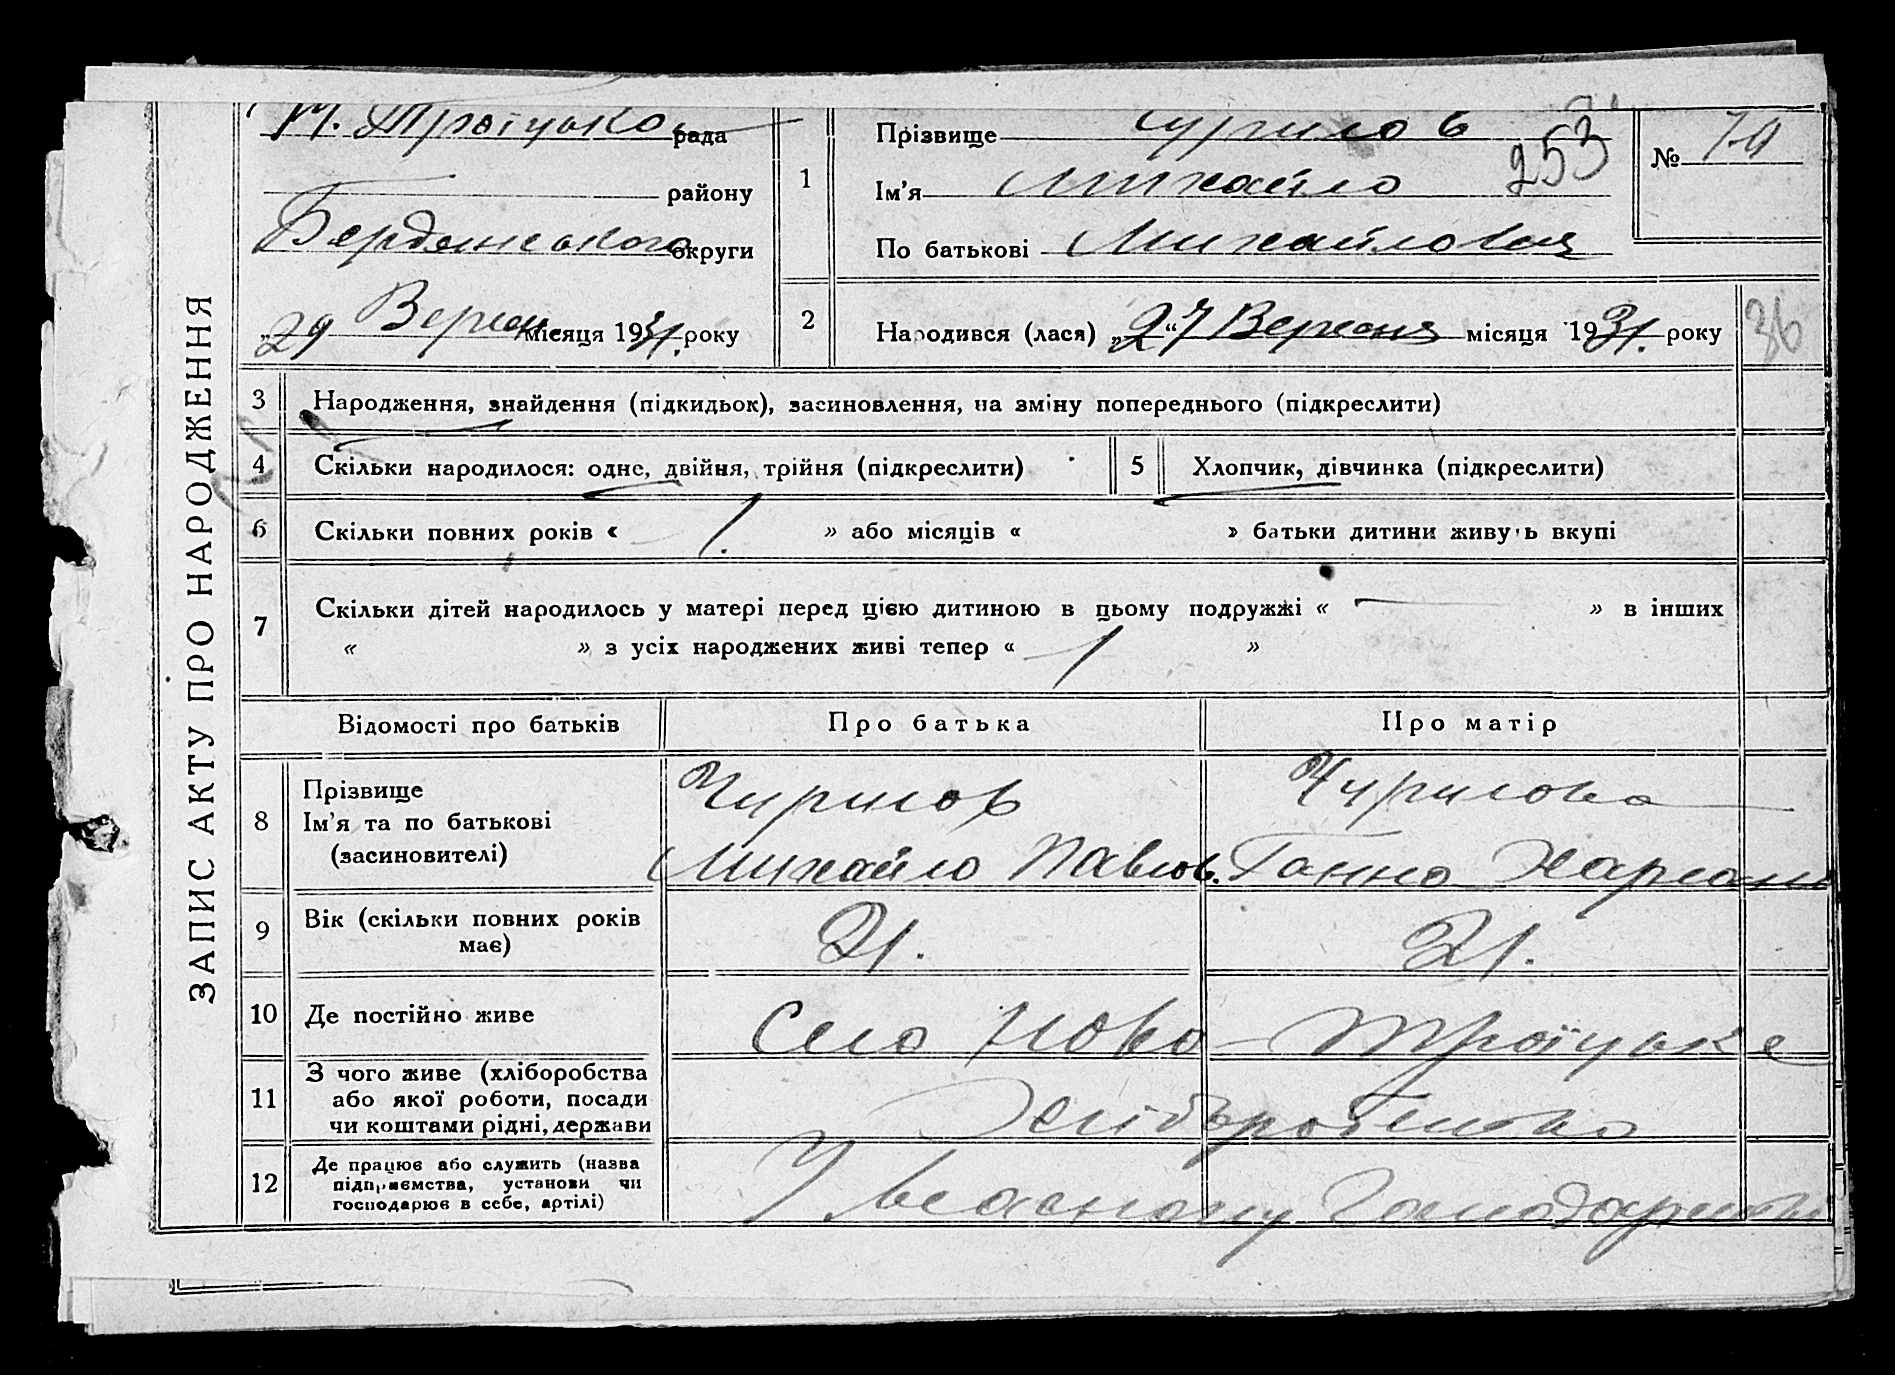 Н. Троїцько рада
району
Бердянського округи
„29 Вересн місяця 1931. року
1
Прізвище Чурилов
Ім’я Михайло
По батькові Михайлович
253
№ 70
2
Народився (лася) „27“ Вересня місяця 1931. року
36
ЗАПИС АКТУ ПРО НАРОДЖЕННЯ
3 Народження, знайдення (підкидьок), засиновлення, на зміну попереднього (підкреслити)
4 Скільки народилося: одне, двійня, трійня (підкреслити)
5 Хлопчик, дівчинка (підкреслити)
6 Скільки повних років « 1. » або місяців « » батьки дитини живуть вкупі
7 Скільки дітей народилось у матері перед цією дитиною в цьому подружжі « — » в інших
« » з усіх народжених живі тепер « 1 »
Відомості про батьків Про батька Про матір
8 Прізвище
Ім’я та по батькові
(засиновителі)
Чурилов
Михайло Павлов.
Чурилова
Ганна
9 Вік (скільки повних років
має)
21. 21.
10 Де постійно живе Село Ново-Троїцьке
11 З чого живе (хліборобства
або якої роботи, посади
чи коштами рідні, держави
Хліборобство
12 Де працює або служить (назва
підприємства, установи чи
господарює в себе, артілі)
У власному Господарстві